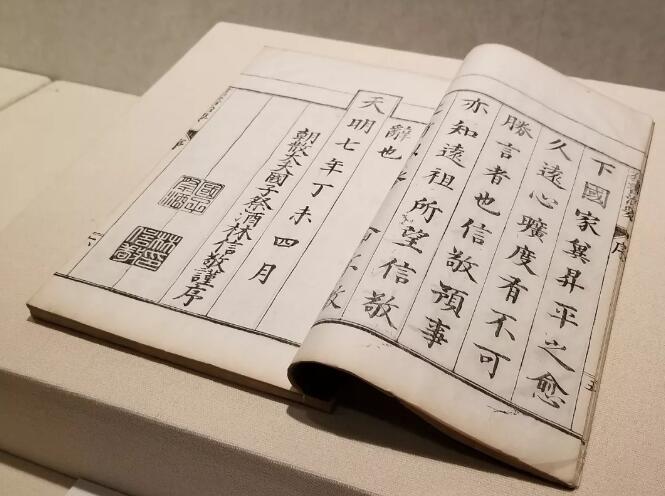 下國家冀昇平之愈
久遠心曠度有不可
勝言者也信敬預事
亦知遠祖所望信敬
辭也
天明七年丁未四月
朝散大夫國子祭酒林信敬謹序
序
五
序